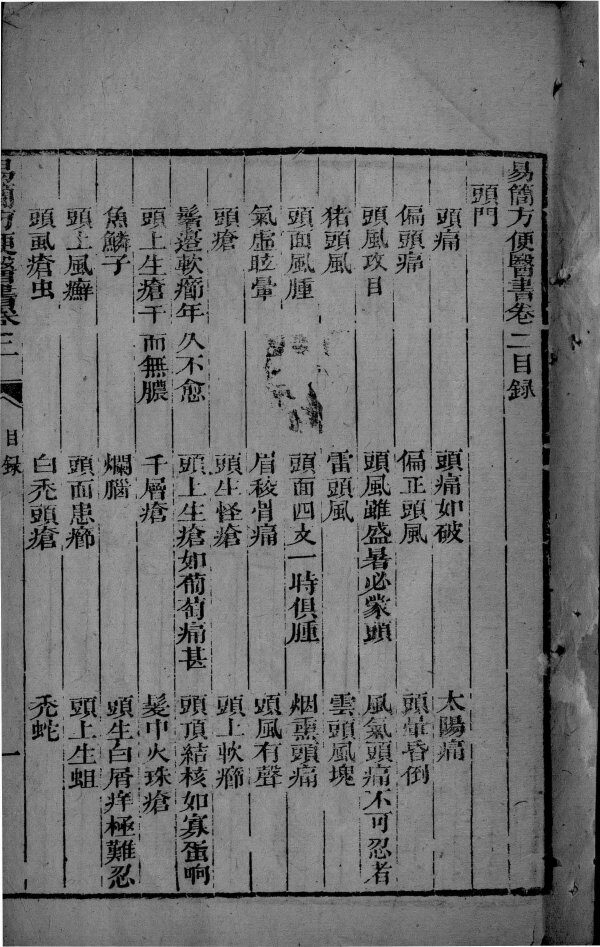 易簡方便醫書卷二目録
頭門
頭痛 頭痛如破 太陽痛
偏頭痛 偏正頭風 頭暈昏倒
頭風攻目 頭風雖盛暑必蒙頭 風氣頭痛不可忍者
猪頭風 雷頭風 雲頭風塊
頭面風腫 頭面四支一時俱腫 烟熏頭痛
氣虛眩暈 眉稜骨痛 頭風有聲
頭瘡 頭生怪瘡 頭上軟癤
鬢邊軟癤年久不愈 頭上生瘡如葡萄痛甚 頭頂結核如寡蛋响
頭上生瘡干而無膿 千層瘡 髮中火珠瘡
魚鱗子 爛腦 頭生白屑痒極難忍
頭上風癬 頭面患癤 頭上生蛆
頭虱瘡虫 白禿頭瘡 禿蛇
易簡方便醫書卷二 目録 一